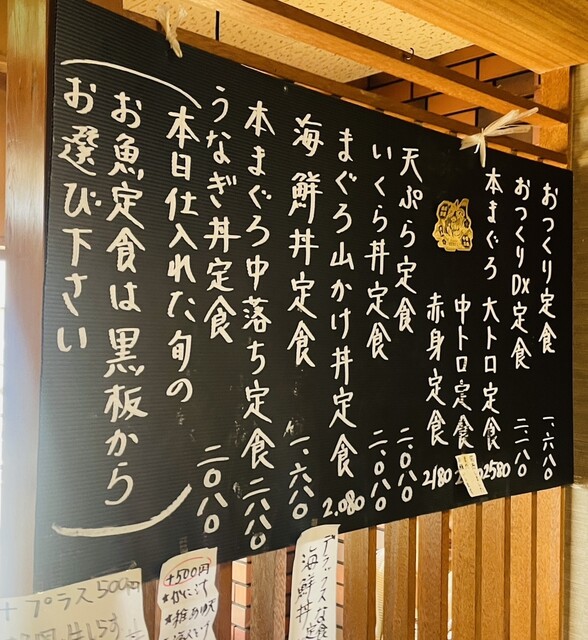 おつくり定食 一、六八〇
おつくりDX定食 二、一八〇
本まぐろ 大トロ定食 2580
中トロ定食
赤身定食 2180
天ぷら定食 二、〇八〇
いくら丼定食 二、〇八〇
まぐろ山かけ丼定食 2,080
海鮮丼定食 一、六八〇
本まぐろ中落ち定食 二一八〇
うなぎ丼定食 二〇八〇
本日仕入れた旬の
お魚定食は黒板から
お選び下さい
デラックスな
海鮮丼
+500円
+プラス500円